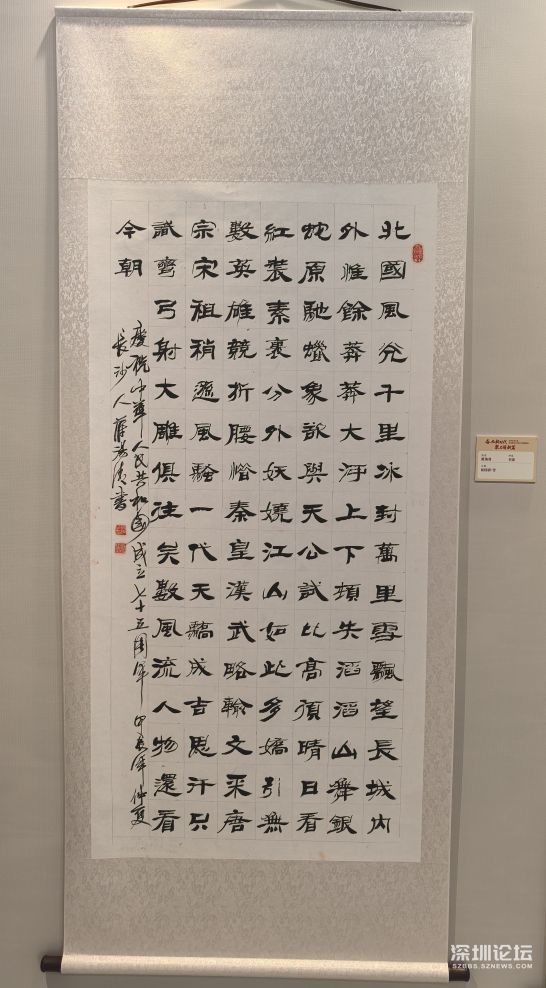 北國風光千里冰封萬里雪飄望長城內
外惟餘莽莽大河上下頓失滔滔山舞銀
蛇原馳蠟象欲與天公試比高須晴日看
紅裝素裹分外妖嬈江山如此多嬌引無
數英雄競折腰惜秦皇漢武略輸文采唐
宗宋祖稍遜風騷一代天驕成吉思汗只
識彎弓射大雕俱往矣數風流人物還看
今朝
慶祝中華人民共和國成立七十五周年 甲辰年仲夏
長沙人薛書
深圳论坛
SZBBS.SZNEWS.COM